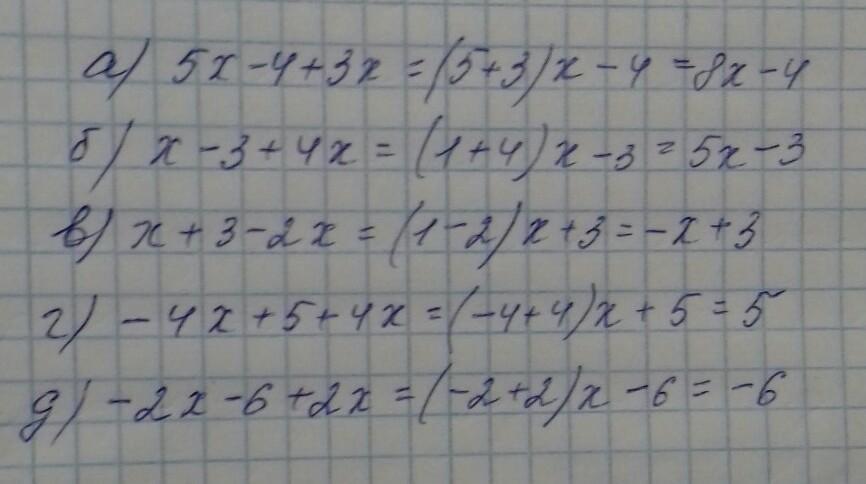 а) 5x-4+3x=(5+3)x-4=8x-4
б) x-3+4x=(1+4)x-3=5x-3
в) x+3-2x=(1-2)x+3=-x+3
г) -4x+5+4x=(-4+4)x+5=5
д) -2x-6+2x=(-2+2)x-6=-6